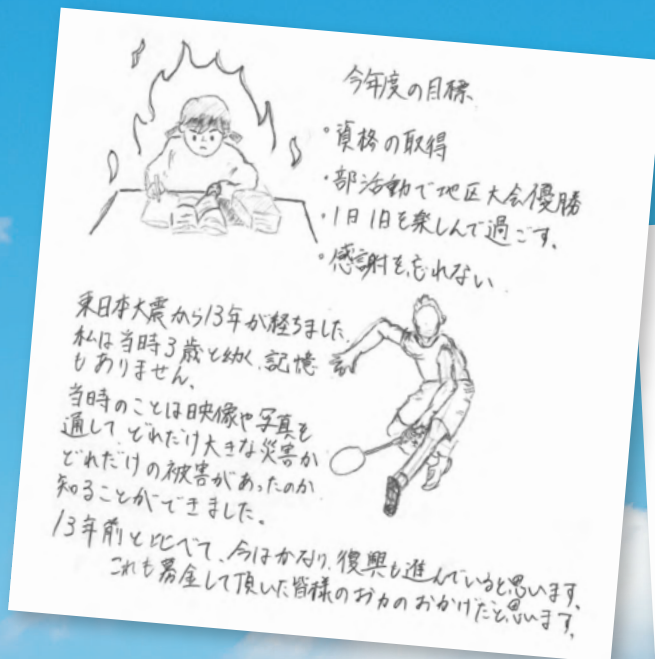 今年度の目標
・資格の取得
・部活動で地区大会優勝
・1日1日を楽しんで過ごす。
・感謝を忘れない
東日本大震から13年が経ちました
私は当時3歳と幼く、記憶
もありません。
当時のことは映像や写真を
通して、どれだけ大きな災害か
どれだけの被害があったのか
知ることができました。
13年前と比べて、今はかなり、復興も進んでいると思います。
これも募金して頂いた皆様のお力のおかげだと思います。